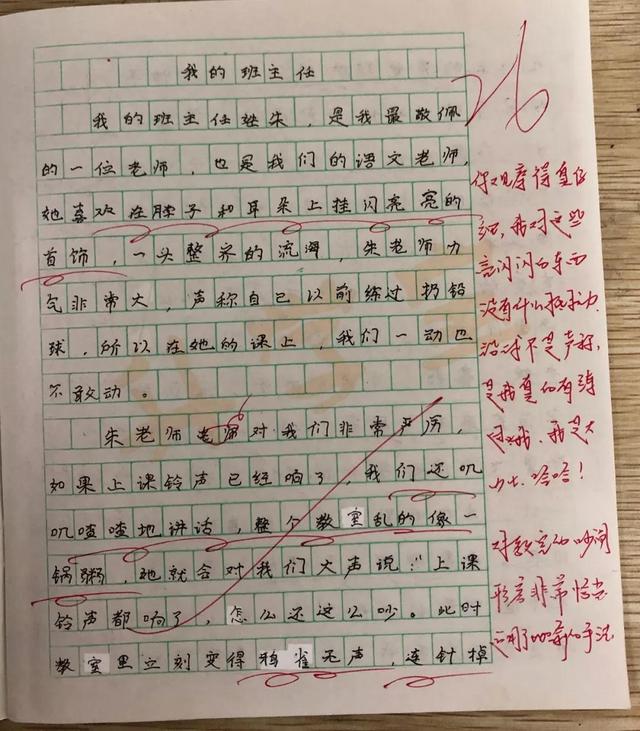 我的班主任
26
我的班主任姓朱，是我最敬佩
的一位老师，也是我们的语文老师，
她喜欢在脖子和耳朵上挂闪亮亮的
首饰，一头整齐的流海，朱老师力
气非常大，声称自己以前练过扔铅
球，所以在她的课上，我们一动也
不敢动。
朱老师老师对我们非常严厉，
如果上课铃声已经响了，我们还叽
叽喳喳地讲话，整个教室乱的像一
锅粥，她就会对我们大声说："上课
铃声都响了，怎么还这么吵。此时
教室里立刻变得鸦雀无声，连针掉
你观察得真仔
我对这些
闪闪的东西
没有什么抵抗力
不是声称，
是我真的有练
我是大
哈哈！
对教室的吵闹
形容非常恰当
运用了比喻的手法